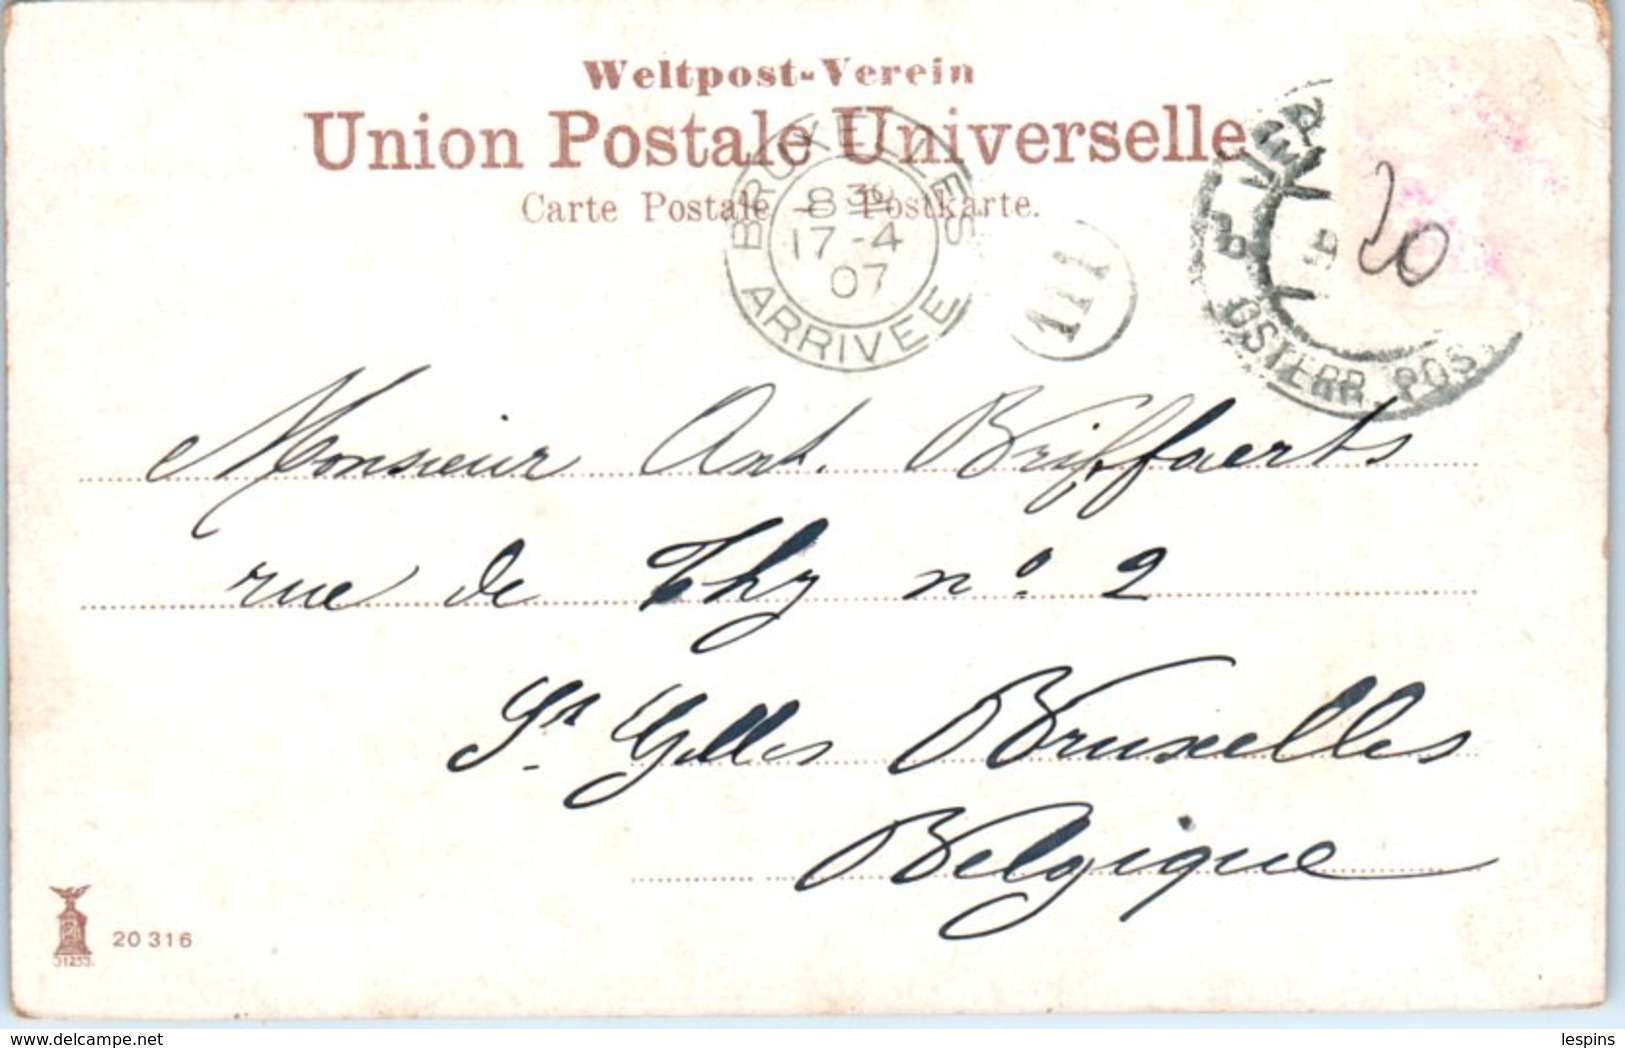 Weltpost-Verein
Union Postale Universelle
Carte Postale – Postkarte.
BRUXELLES
8 30
17-4
07
ARRIVEE
111
OSTERR. POS
20
Monsieur Ant. Briffaerts
rue de Thy n° 2
St Gilles Bruxelles
Belgique
20 316
31253.
delcampe.net
lespins